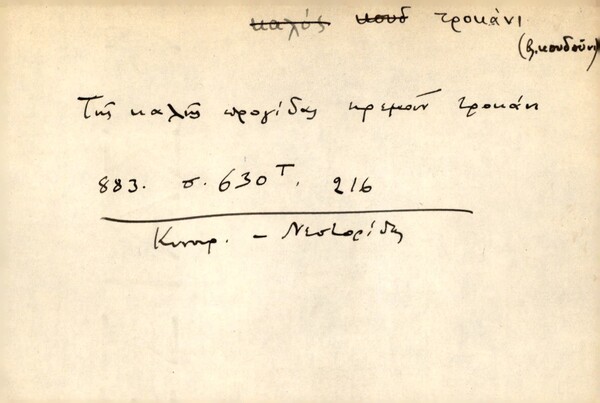 καλός κουδ τροκάνι
(βλ. κουδούνι)
Τής καλής προγίδας κρεμούν τροκάνι
883. σ. 630 Τ. 216
Κυπρ. - Νεστορίδης